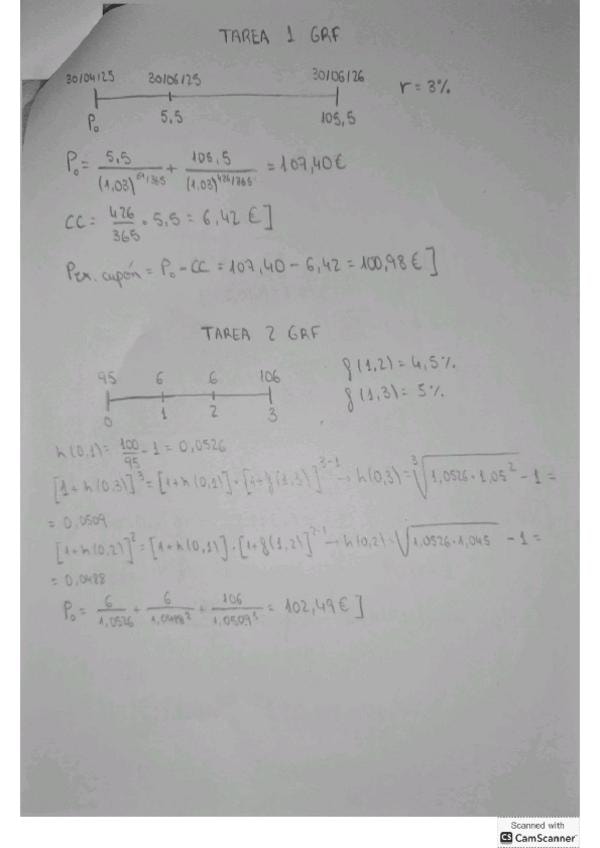 TAREA 1 GRF
30/04/25 30/06/25 30/06/26 r = 3%
P₀ 5,5 105,5
P₀ = 5,5/(1,03)^61/365 + 105,5/(1,03)^426/365 = 107,40€
CC = 426/365 · 5,5 = 6,42 €]
Pex. cupón = P₀ - CC = 107,40 - 6,42 = 100,98€]
TAREA 2 GRF
f(1,2) = 4,5%
95 6 6 106 f(1,3) = 5%
0 1 2 3
h(0,1) = 100/95 - 1 = 0,0526
[1+h(0,3)]³ = [1+h(0,1)]·[1+f(1,3)]^3-1 → h(0,3) = ³√1,0526·1,05² - 1 =
= 0,0509
[1+h(0,2)]² = [1+h(0,1)]·[1+f(1,2)]^2-1 → h(0,2) = √1,0526·1,045 - 1 =
= 0,0488
P₀ = 6/1,0526 + 6/1,0488² + 106/1,0509³ = 102,49€]
Scanned with
CS CamScanner